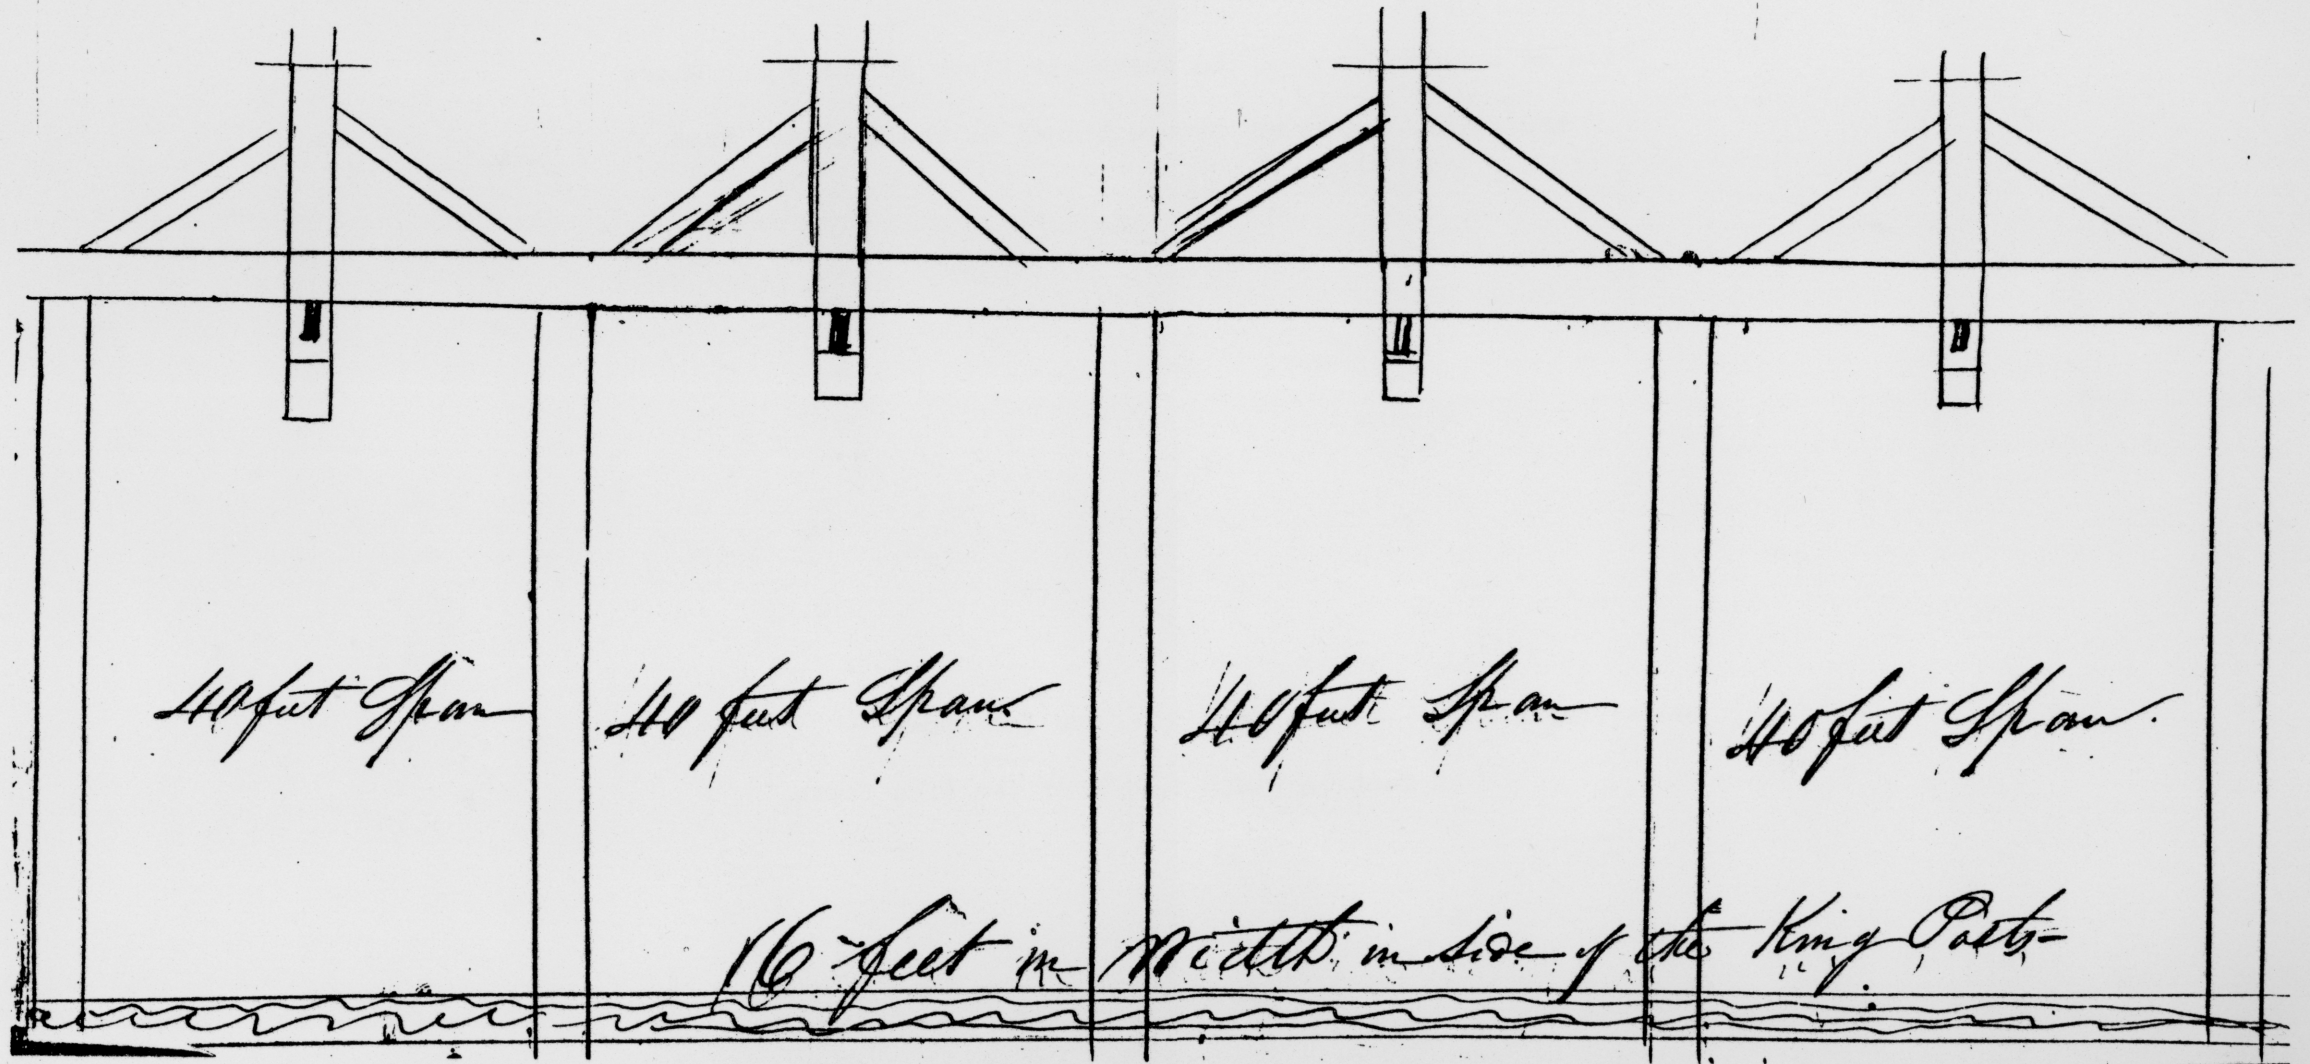 40 feet Span
40 feet Span
40 feet Span
40 feet Span.
16 feet in Width in side of the King Posts